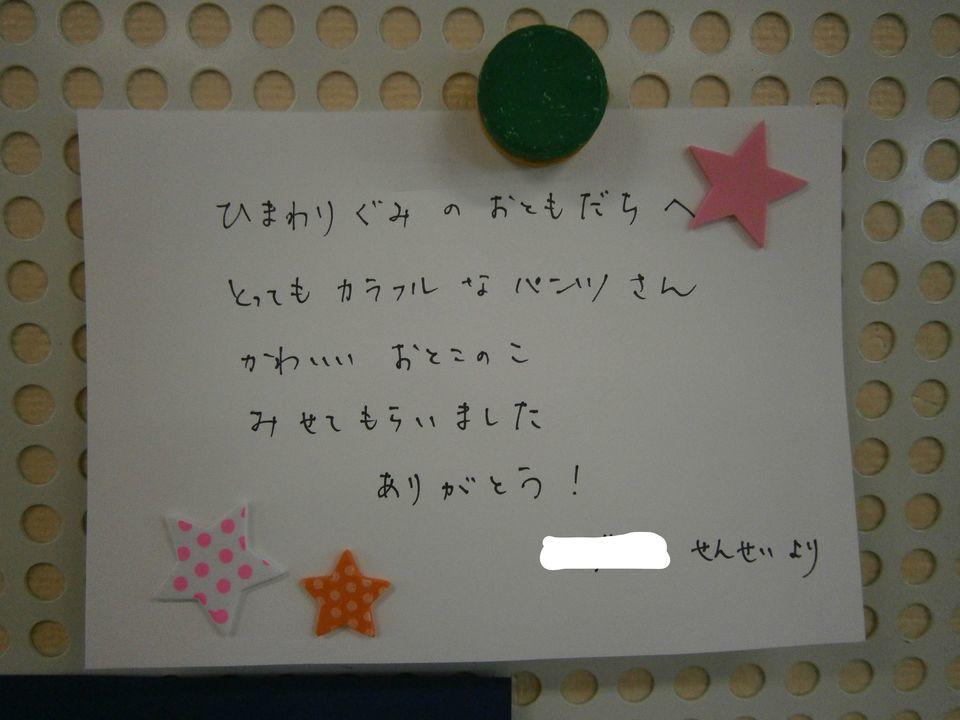 ひまわりぐみ の おともだち へ
とっても カラフル な パンツ さん
かわいい おとこのこ
みせてもらいました
ありがとう!
せんせい より